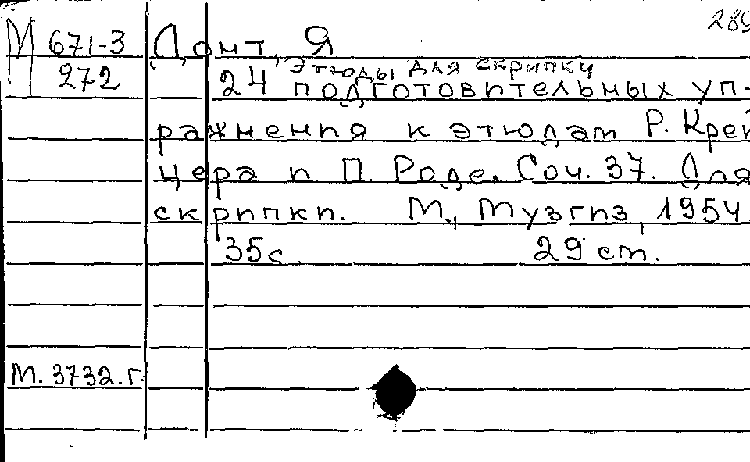 289
М 671-3 Донт, Я
272
этюды для скрипки
24 подготовительных уп-
ражнения к этюдам Р. Крей
цера и П. Роде. Соч. 37. Для
скрипки. М., Музгиз, 1954
35с 29 ст.
М. 3732.г.